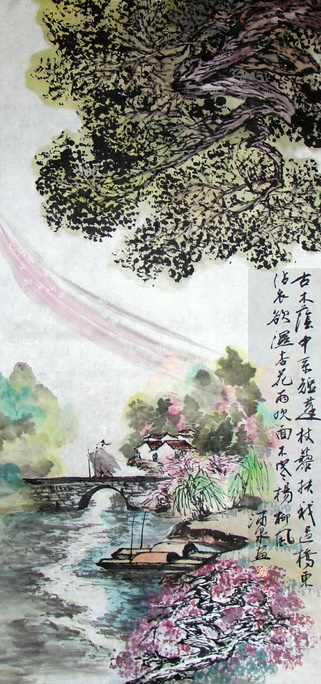 古木蔭中系短蓬杖藜扶我過橋東
沾衣欲濕杏花雨吹面不寒楊柳風